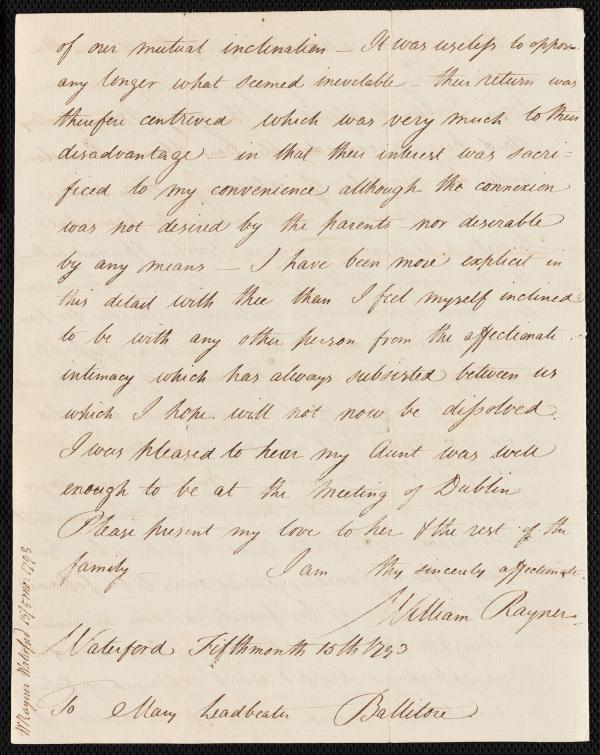 of our mutual inclination – It was useless to oppose
any longer what seemed inevitable – their return was
therefore contrived which was very much to their
disadvantage – in that their interest was sacri=
ficed to my convenience although the connexion
was not desired by the parents nor desirable
by any means – I have been more explicit in
this detail with thee than I feel myself inclined
to be with any other person from the affectionate
intimacy which has always subsisted between us
which I hope will not now be dissolved.
I was pleased to hear my Aunt was well
enough to be at the Meeting of Dublin
Please present my love to her & the rest of the
family I am thy sincerely affectionate
William Rayner
Waterford Fifthmonth 15th 1793
To Mary Leadbeater Ballitore
W Rayner Waterford 15/5 mo: 1793